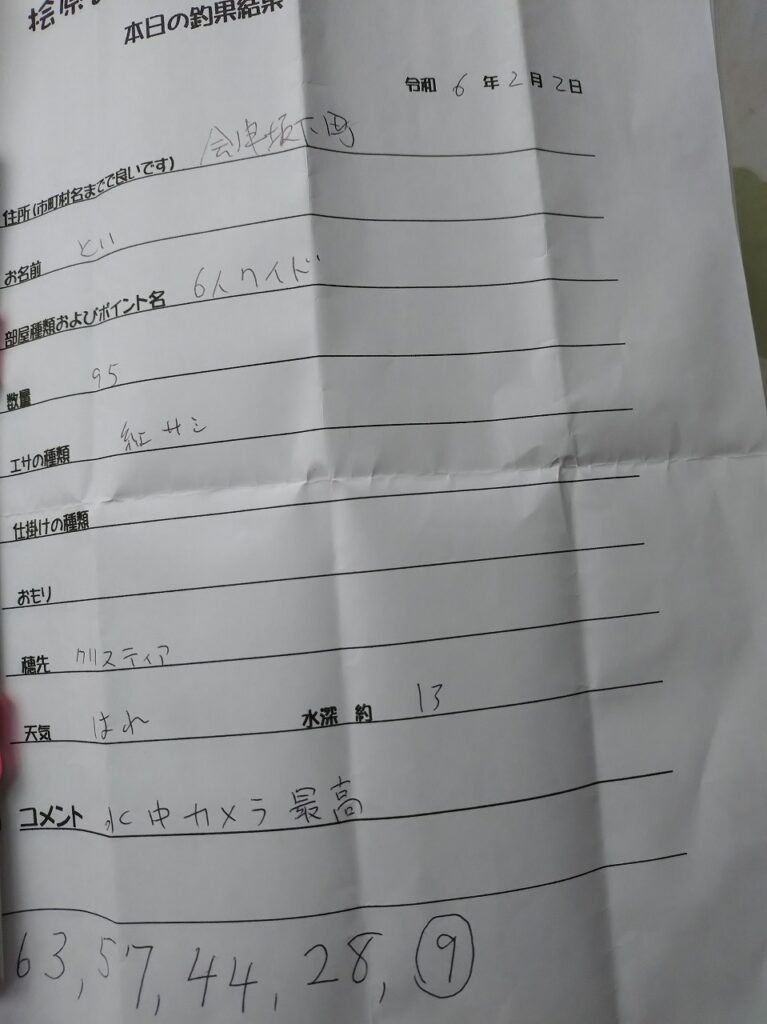 桧原
本日の釣果結果
令和 6 年 2 月 2 日
住所(市町村名までで良いです) 会津坂下町
お名前 とい
部屋種類およびポイント名 6人ワイド
数量 95
エサの種類 紅サシ
仕掛けの種類
おもり
穂先 クリスティア
天気 はれ 水深 約 13
コメント 水中カメラ最高
63, 57, 44, 28, 9